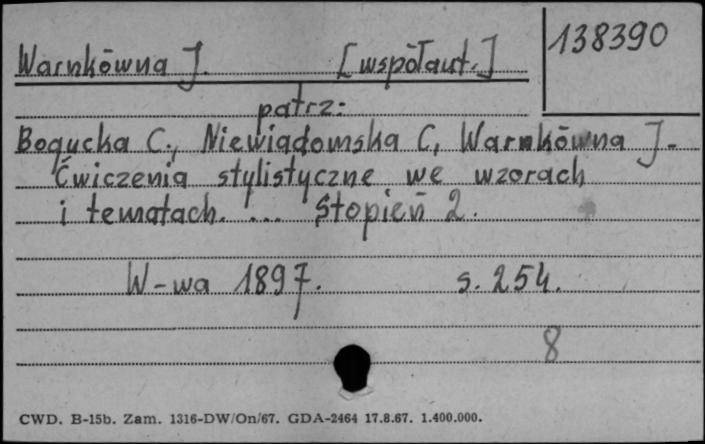 138390
Warnkówna J. [współaut.]
patrz:
Bogucka C., Niewiadomska C, Warnkówna J.-
Ćwiczenia stylistyczne we wzorach
i tematach. ... Stopień 2.
W-wa 1897. s. 254.
8
CWD. B-15b. Zam. 1316-DW/On/67. GDA-2464 17.8.67. 1.400.000.